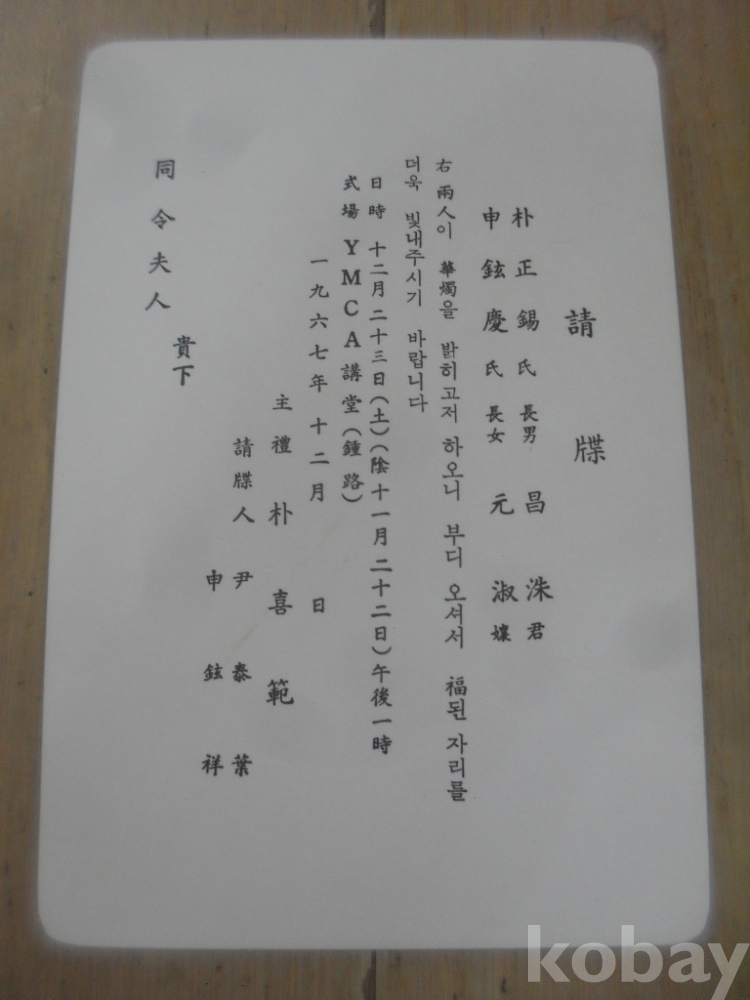 請牒
朴正錫氏 長男 昌洙 君
申鉉慶氏 長女 元淑 孃
右 兩人이 華燭을 밝히고저 하오니 부디 오셔서 福된 자리를
더욱 빛내주시기 바랍니다
日時 十二月二十三日(土)(陰十一月二十二日)午後一時
式場 YMCA講堂(鍾路)
一九六七年 十二月 日
主禮 朴喜範
請牒人 尹泰葉
申鉉祥
貴下
同令夫人
kobay